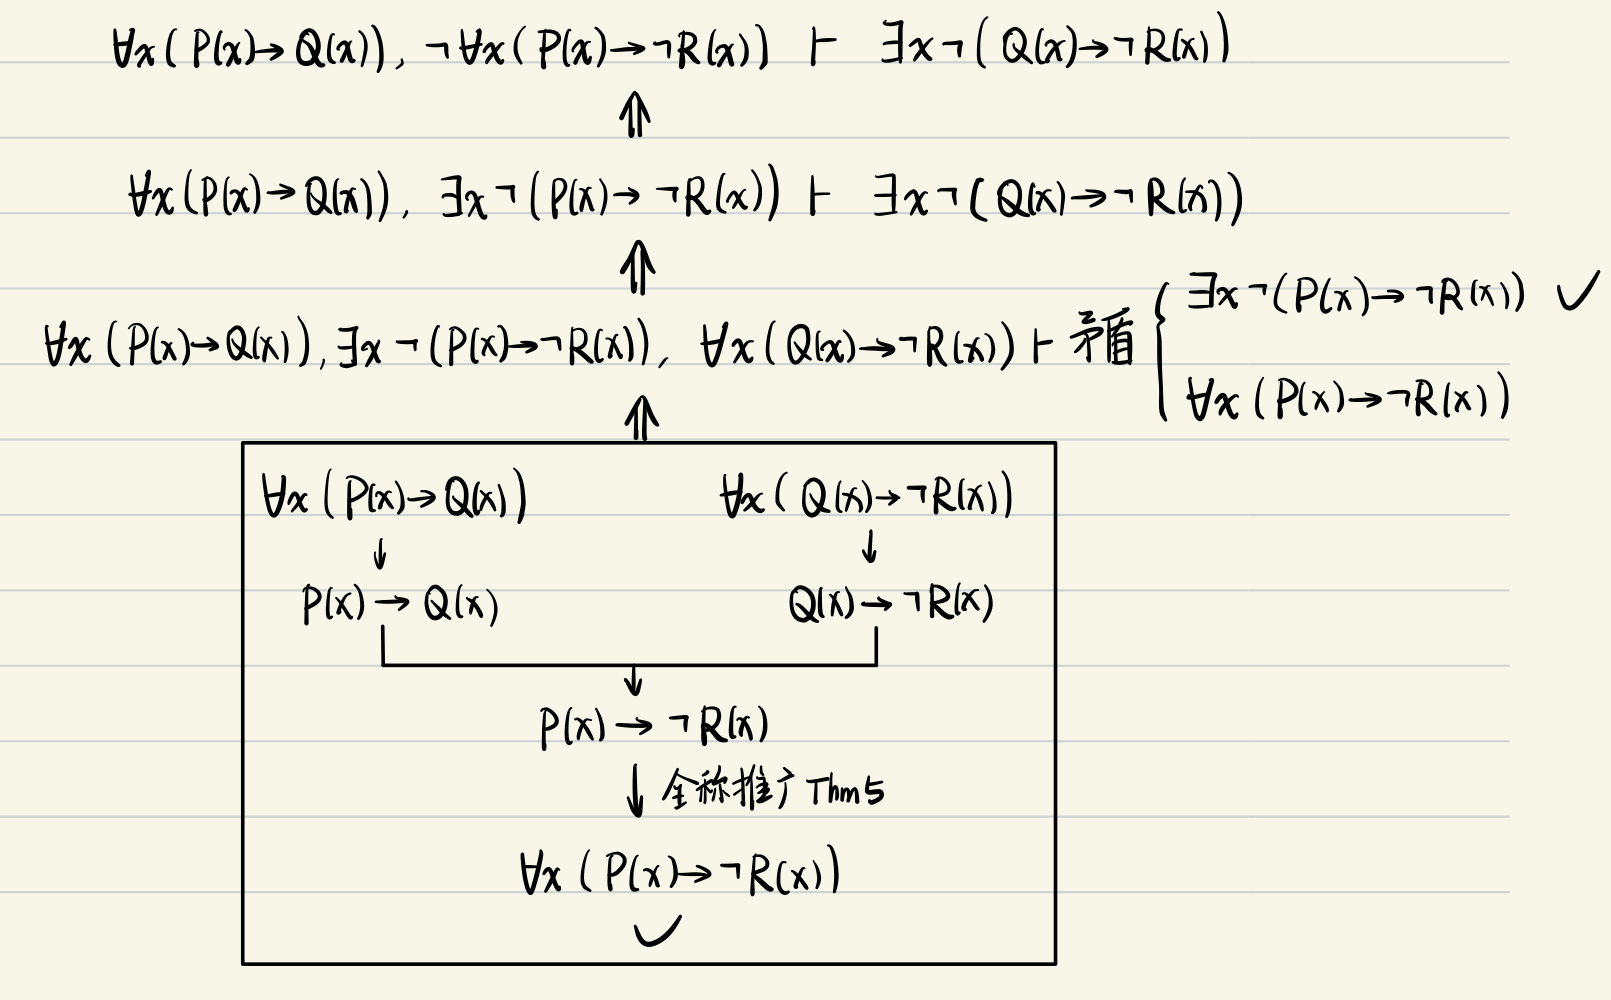 ∀x(P(x)→Q(x)), ¬∀x(P(x)→¬R(x)) ⊢ ∃x¬(Q(x)→¬R(x))
⇑
∀x(P(x)→Q(x)), ∃x¬(P(x)→¬R(x)) ⊢ ∃x¬(Q(x)→¬R(x))
⇑
∀x(P(x)→Q(x)), ∃x¬(P(x)→¬R(x)), ∀x(Q(x)→¬R(x)) ⊢ 矛盾 {
∃x¬(P(x)→¬R(x)) ✓
∀x(P(x)→¬R(x))
⇑
∀x(P(x)→Q(x)) ∀x(Q(x)→¬R(x))
↓ ↓
P(x)→Q(x) Q(x)→¬R(x)
↓
P(x)→¬R(x)
↓ 全称推广 Thm5
∀x(P(x)→¬R(x))
✓